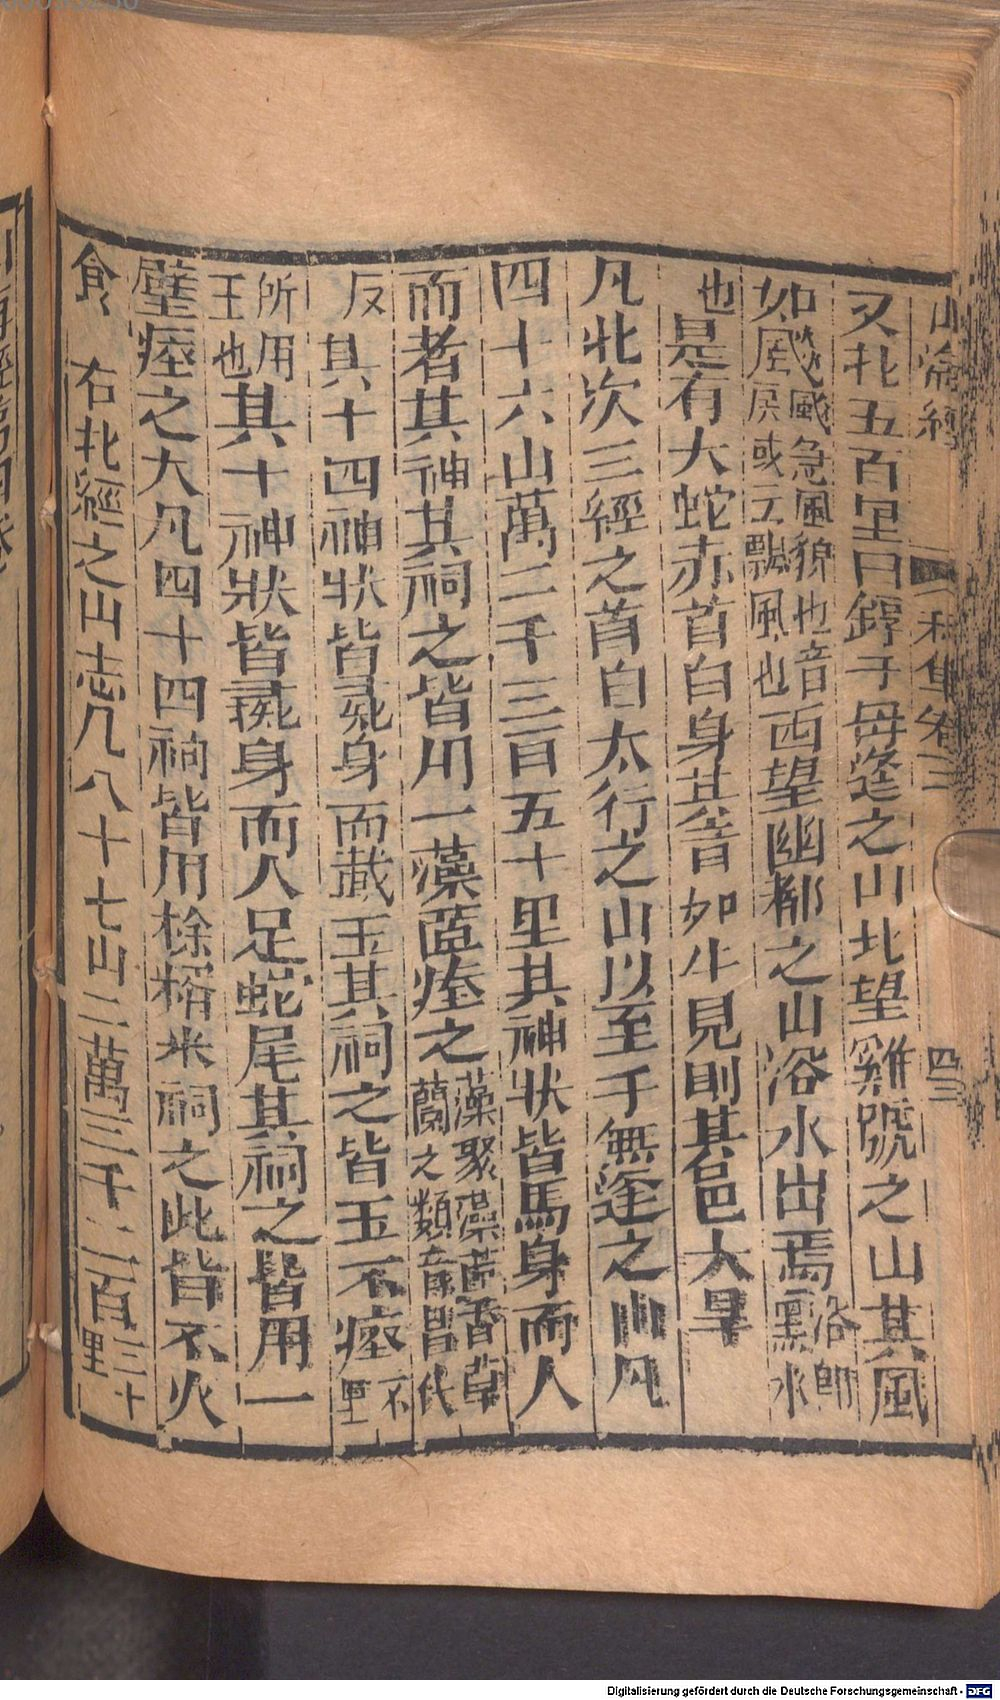 又北五百里曰錞于毋逢之山北望雞號之山其風
如䬅䬅風急風貌也音戾或云飄風也西望幽都之山浴水出焉浴即黑水
也是有大蛇赤首白身其音如牛見則其邑大旱
凡北次三經之首自太行之山以至于無逢之山凡
四十六山萬二千三百五十里其神狀皆馬身而人
而者其神其祠之皆用一藻茝瘞之藻聚藻茝香草蘭之類音昌代
反其十四神狀皆彘身而載玉其祠之皆玉不瘞不里
所用王也其十神狀皆彘身而人足蛇尾其祠之皆用一
璧瘞之大凡四十四神皆用稌糈米祠之此皆不火
食 右北經之山志凡八十七山二萬三千二百三十里
山海經
卷三
四三
Digitalisierung gefördert durch die Deutsche Forschungsgemeinschaft - DFG